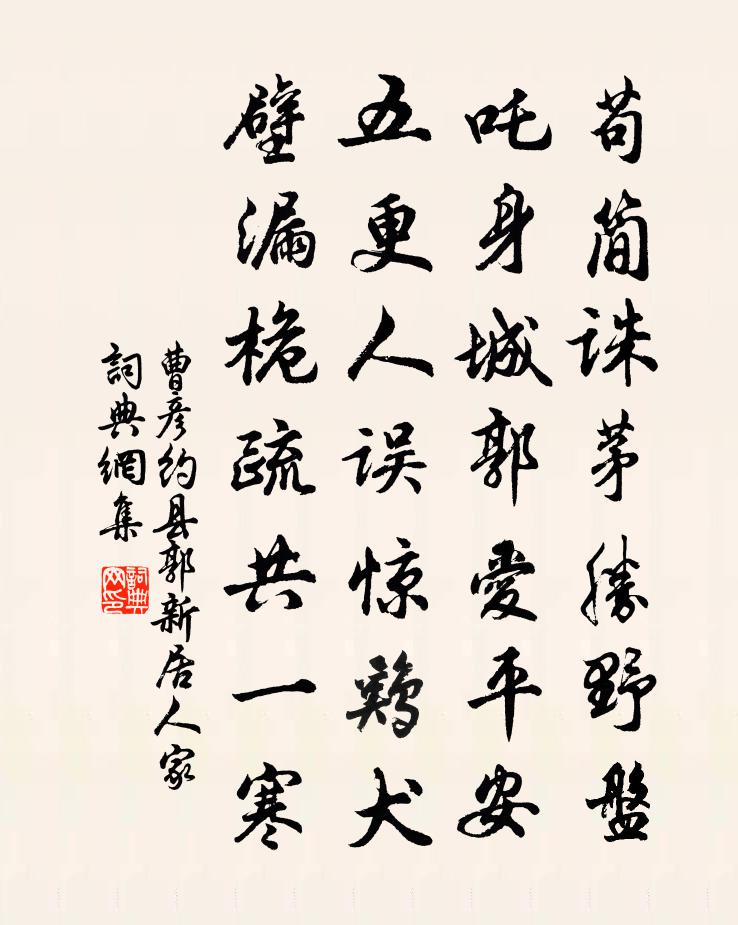 苟简诛茅勝野盤
吒身城郭愛平安
五更人误惊鷄犬
壁漏桅疏共一寒
曹彦约县郭新居人家
詞典網集
詞典网印